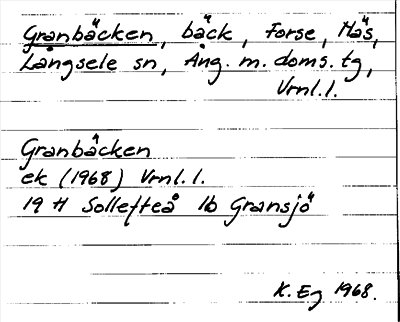 Granbäcken, bäck, Forse, Häs,
Långsele sn, Ång. m. doms. tg,
Vrnl.l.
Granbäcken
ek (1968) Vrnl.l.
19 H Sollefteå 1b Gransjö
K. Eg 1968.